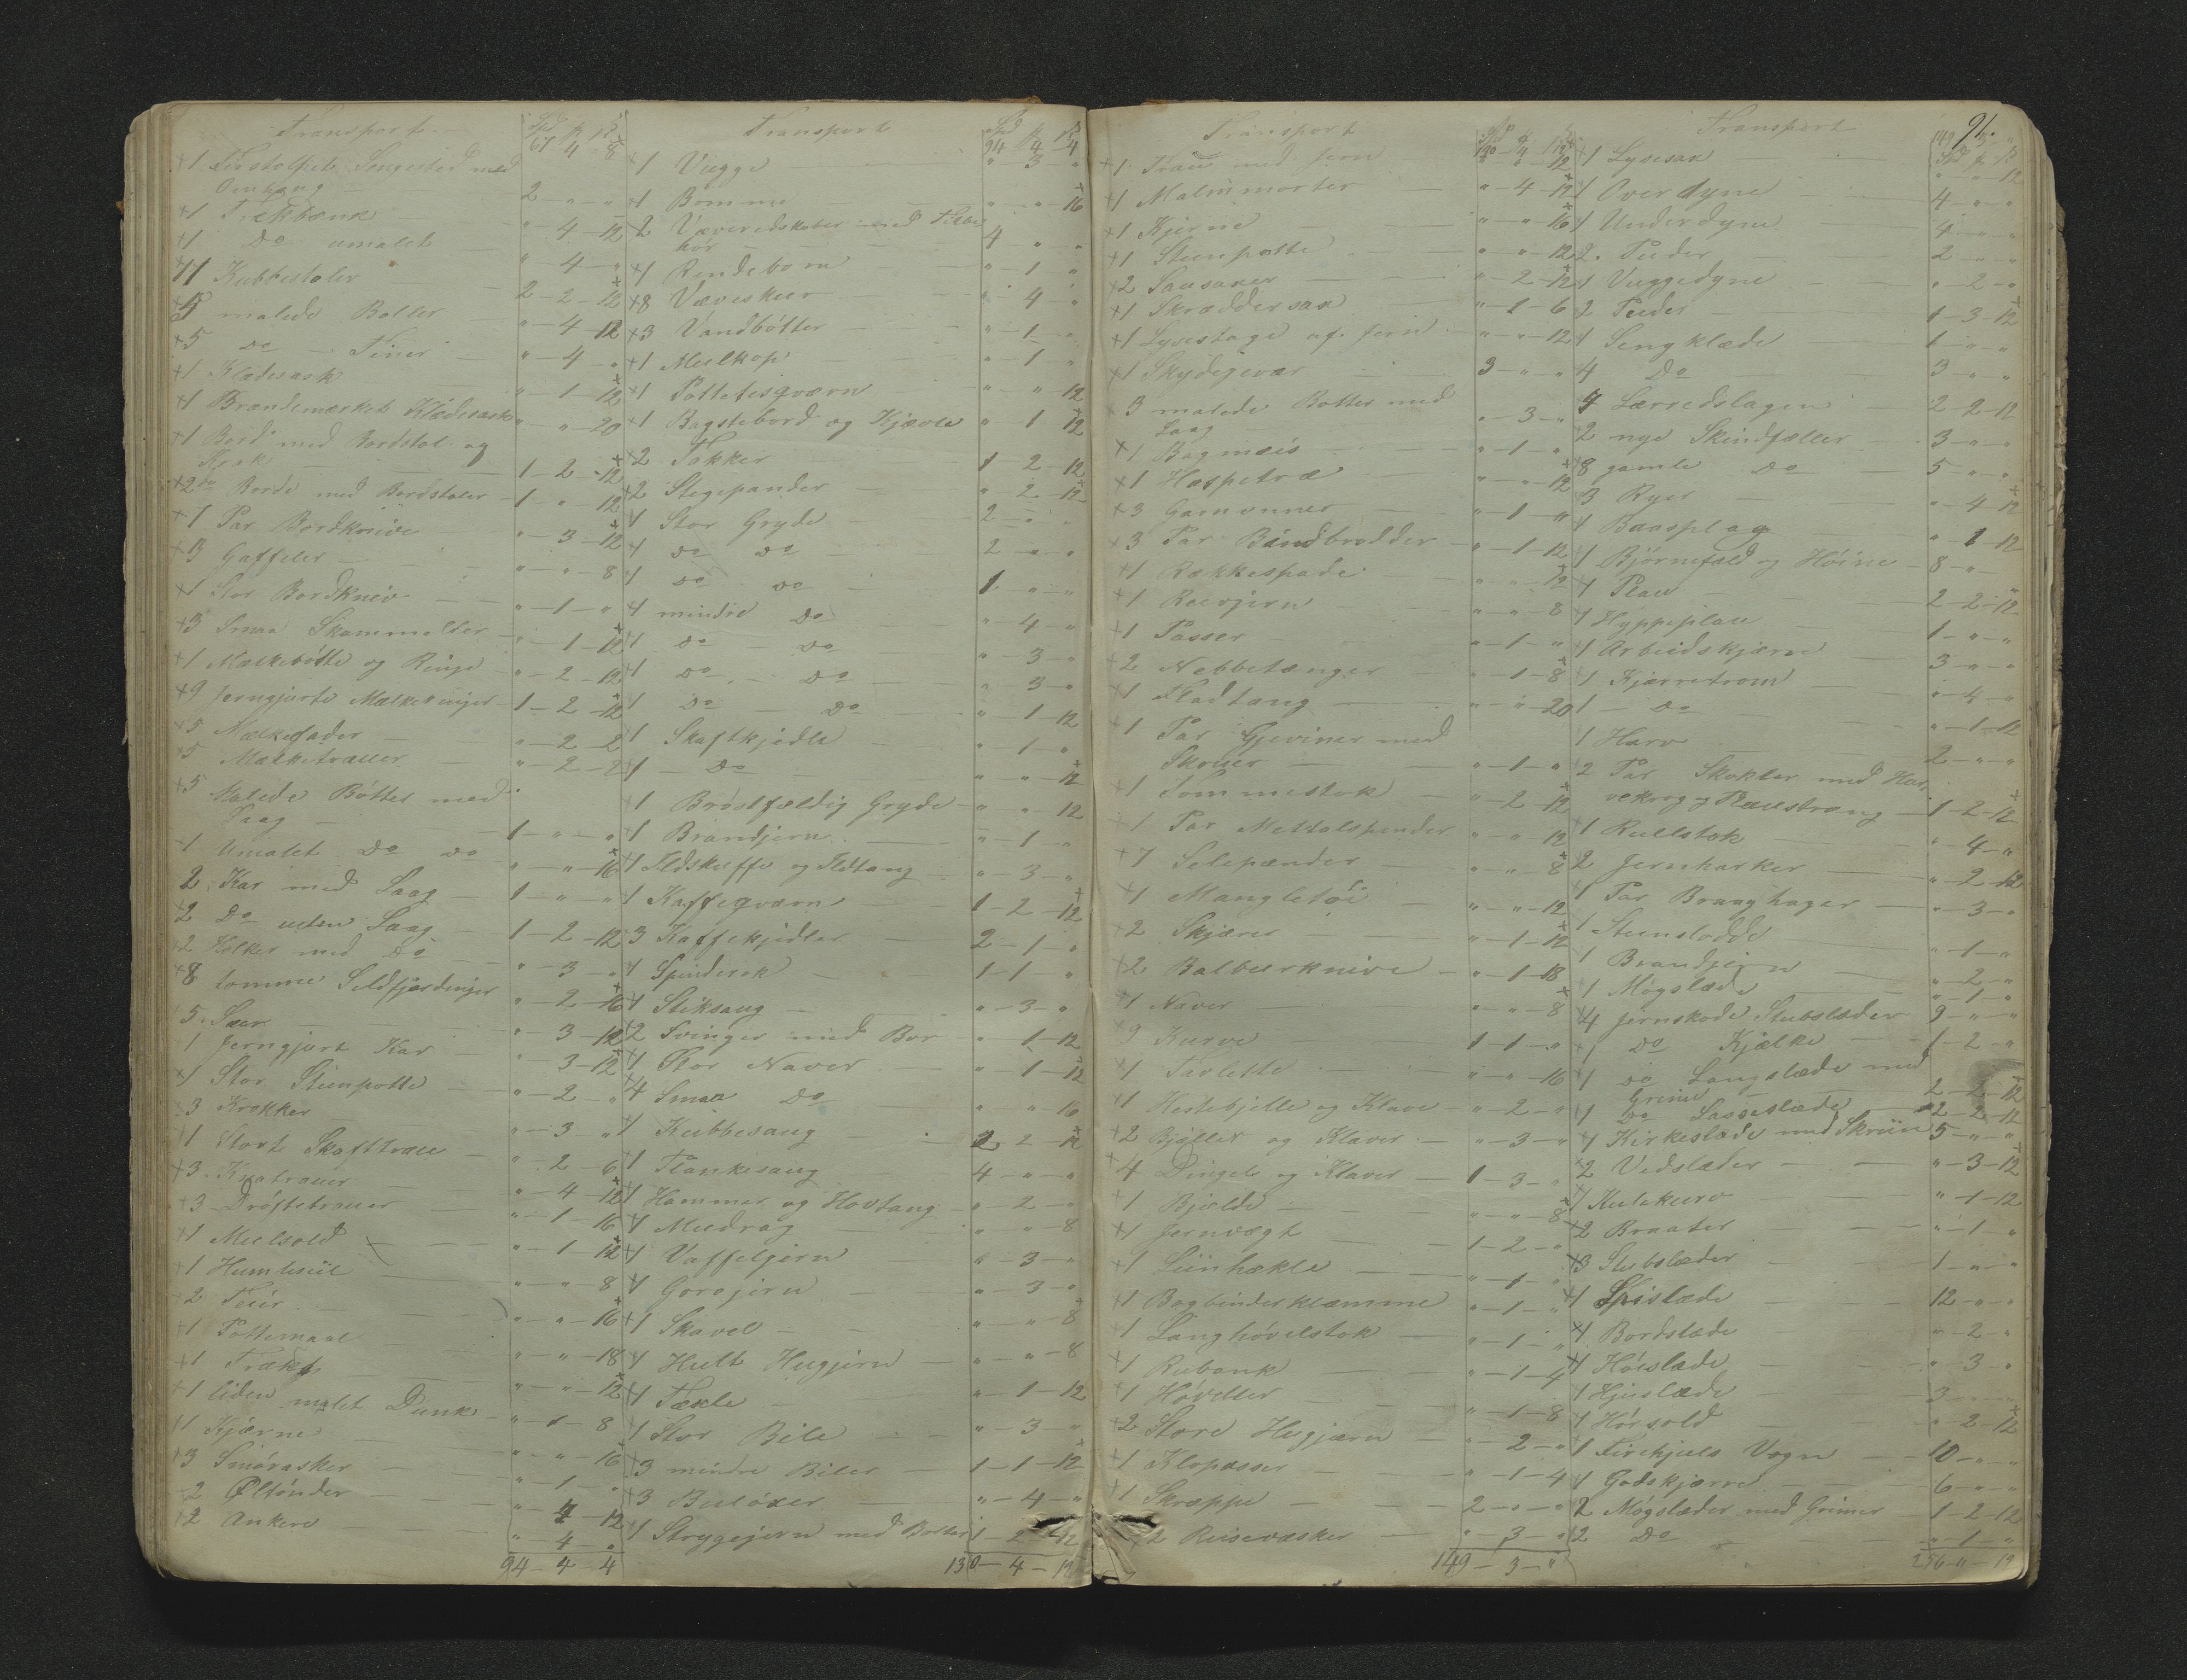 Transport
Spd ₰ ß
67 4 8
+1 Firstolpet Sengested med
Omhang 2 - " - "
+1 Trækbænk " - 4 - 12
+1 Do umalet " - 4 - "
11 Kubbestoler 2 - 2 - 12
+4 malede Boller " - 4 - 12
+5 Do Tiner " - 4 - "
+1 Klædesask " - 1 - 12
+1 Brændemærket Klædesask " - " - 20
+1 Bord med Bordstol og
1 - 2 - 12
+2 Borde med Bordstoler 1 - " - 12
+1 Par Bordknive " - 3 - 12
+3 Gafler " - " - 8
+1 Stor Bordkniv " - 1 - "
+3 Smaa Skammelter " - 1 - 12
+1 Mælkebøtte og Ringe " - 2 - 12
+9 Jerngjorte Mælkeringer 1 - 2 - 12
+5 Mælkefader " - 2 - 2
+5 Mælketrauer " - 2 - 2
+5 Malede Bøtter med
Laag 1 - " - "
1 Umalet Do Do " - " - 16
2 Kar med Laag 1 - " - "
+2 Do uden Laag 1 - 2 - 12
2 Holker med Do " - 3 - "
+8 tomme Sildfjerdinger " - 2 - 16
5 Saer " - 3 - 12
1 Jerngjort Kar " - 3 - 12
+1 Stor Steenpotte " - 2 - "
3 Krukker " - 3 - "
+1 Stort Skafttrau " - 2 - 6
+3 Knatrauer " - 4 - 12
+3 Drøftetrauer " - 1 - 16
+1 Meelsold " - 1 - 12
+1 Humlesiil " - " - 8
+2 " - " - 16
+1 Pottemaal " - " - 18
+1 Trækt " - " - 12
+1 liden malet Dunk " - 1 - 8
+1 Kjærne " - " - 16
+3 Smørasker " - 1 - "
2 Øltønder " - 4 - 12
+2 Ankere " - 4 - "
94 - 4 - 4
Transport
Spd ₰ ß
94 4 4
+1 Vugge " - 3 - "
+1 Bomme " - " - 16
+2 Væveredskaber med Tilbe
hør 4 " "
+1 Rendebom " - 1 "
+8 Væveskeer " 4 "
+3 Vandbøtter " - 1 - "
+1 Meelkop " 1 "
+1 Pottetesqværn " " 12
+1 Bagstebord og Kjævle " 1 12
+2 Takker 1 - 2 - 12
+2 Stegepander " - 2 - 12
+1 Stor Gryde 2 - " "
+1 Do Do 2 - " "
+1 Do Do 1 " "
+1 mindre Do " - 4 - "
+1 Do Do " - 3 - "
+1 Do Do " 3 - "
+1 Do Do " - 1 - 12
+1 Skaftkjedle " - 1 - "
+1 Do " " - 12
+1 Brøstfældig Gryde " " 12
+1 Brandjern " - 1 - "
+1 Ildskuffe og Ildtang " - 3 - "
+1 Kaffeqværn 1 - 2 - 12
3 Kaffekjedler 2 - 1 "
+1 Spinderok 1 - 1 "
+1 Stiksaug " - 3 - "
+2 Svinger med Bor " 1 - 12
+1 Stor Naver " - 1 - 12
+4 Smaa Do " " 16
+1 Kubbesaug 2 - 2 - 12
+1 Plankesaug 4 - " - "
+1 Hammer og Hovtang " - 2 - "
+1 Muurdrag " " 8
+1 Vaffeljern " - 3 - "
+1 Gorojern " - 3 - "
+1 Skavel " - " - 8
+1 Hult Hugjern " - " - 8
+1 Texle " - 1 - 12
+1 Stor Bile " - 3 - "
+3 mindre Biler 1 - 1 - 12
+3 Buløxer " - 4 - "
+1 Strygejern med Bolter 1 - 2 - 12
130 - 4 - 12
Transport
Spd ₰ ß
130 4 12
+1 Trau med Jern " " 12
+1 Malmmorter " - 4 - 12
+1 Kjerne " - " - 16
+1 Steenpotte " " 12
+2 Sausaxer " - 2 - 12
+1 Skræddersax " - 1 - 6
+1 Lysestage af Jern " - " - 12
+1 Skydegevær 3 - " - "
+3 malede Bøtter med
Laag " - 3 - "
+1 Bagmeis " - 1 - "
+1 Haspetræ " - " - 12
+3 Garnvinner " - 1 - "
+3 Par Bindbrodder " - 1 - 12
+1 Rækkespade " " 12
+1 Reevjern " " 8
+1 Passer " - 1 - "
+2 Nebbetænger " - 1 - 8
+1 Fladtang " - " - 20
+1 Par Gjeviner med
Skruer " - 1 - "
+1 Tommestok " - 2 - 12
+1 Par Mettalspender " " 12
+7 Selepænder " - " 8
+1 Mangletøi " - " - 12
+2 Skjærer " - 1 - 12
+2 Balbeerknive " - 1 - 18
+1 Naver " - " - 8
+9 Kurve 1 - 1 - "
+1 Tavlette " - " - 16
+1 Hestebjelle og Klave " - 2 - "
+2 Bjeller og Klaver " - 3 - "
+4 Dingel og Klaver 1 - 3 - "
+1 Bjelde " - " - 8
+1 Jernvægt 1 - 2 - "
+1 Liinhækle " - 1 - "
+1 Bogbinderklemme " - 1 - "
+1 Langhøvelstok " - 1 - "
+1 Rubank " - 1 - 4
+1 Høvelter " - 1 - 8
+2 Store Hugjern " - 2 - "
+1 Klopasser " - 1 - 4
+1 Skræppe 2 - " - "
+2 Reisevæsker " - 3 - "
149 - 3 - "
91.
Transport
149 3 "
Spd ₰ ß
+1 Lysesax " " 12
+1 Overdyne 4 - " - "
+1 Underdyne 4 - " - "
2 Puder 2 - " - "
+1 Vuggedyne " 2 - "
+2 Puder 1 - 3 - 12
+1 Sengklæde 1 - " - "
4 Do 3 - " - "
4 Lærredslagen 2 - 2 - 12
2 nye Skindfæller 3 - " - "
+8 gamle Do 5 - " - "
+3 Ryer " - 4 - 12
+1 Baasplag " - 1 - 12
+1 Bjørnefæld og Høine 8 - " -
+1 Plau 2 - 2 - 12
+1 Hyppeplau 1 - " - "
+1 Arbeidskjærre 3 - " - "
+1 Kjærretrom " - 4 - "
1 - Do " - 1 - 12
1 Harv 2 - " - "
+2 Par Skokler med Har
vekrog og Plaustræng 1 - 2 - 12
+1 Rullstok " - 4 - "
+2 Jernharker " - 2 - 12
+1 Par Braaghager " - 3 - "
+1 Steenslodde " - 1 - "
1 Brandjern " - 2 - "
+1 Møgslæde " - 1 - "
+4 Jernskode Stubslæder 9 - " - "
+1 Do Kjælke 1 - 2 - "
+1 Do Langslæde med
Grime 2 - 2 - 12
+1 Do Sassslæde 2 - 2 - 12
+1 Kirkeslæde med Skriin 5 - " - "
+2 Vedslæder " - 3 - 12
+1 Kulekurv " - 1 - 12
+2 Braater " - 1 - "
+3 Stubslæder 1 - " - "
+1 Spislæde 12 - " - "
+1 Bordslæde " - 2 - "
+1 Høislæde " - 3 - "
+1 Hjuslæde 3 - " - "
+1 Hørsold " - 2 - 12
+1 Firehjuls Vogn 10 - " - "
+1 Godskjærre 6 - " - "
2 Møgslæder med Grimer 1 - 2 - 12
2 Do " - 1 - "
256 " - 12